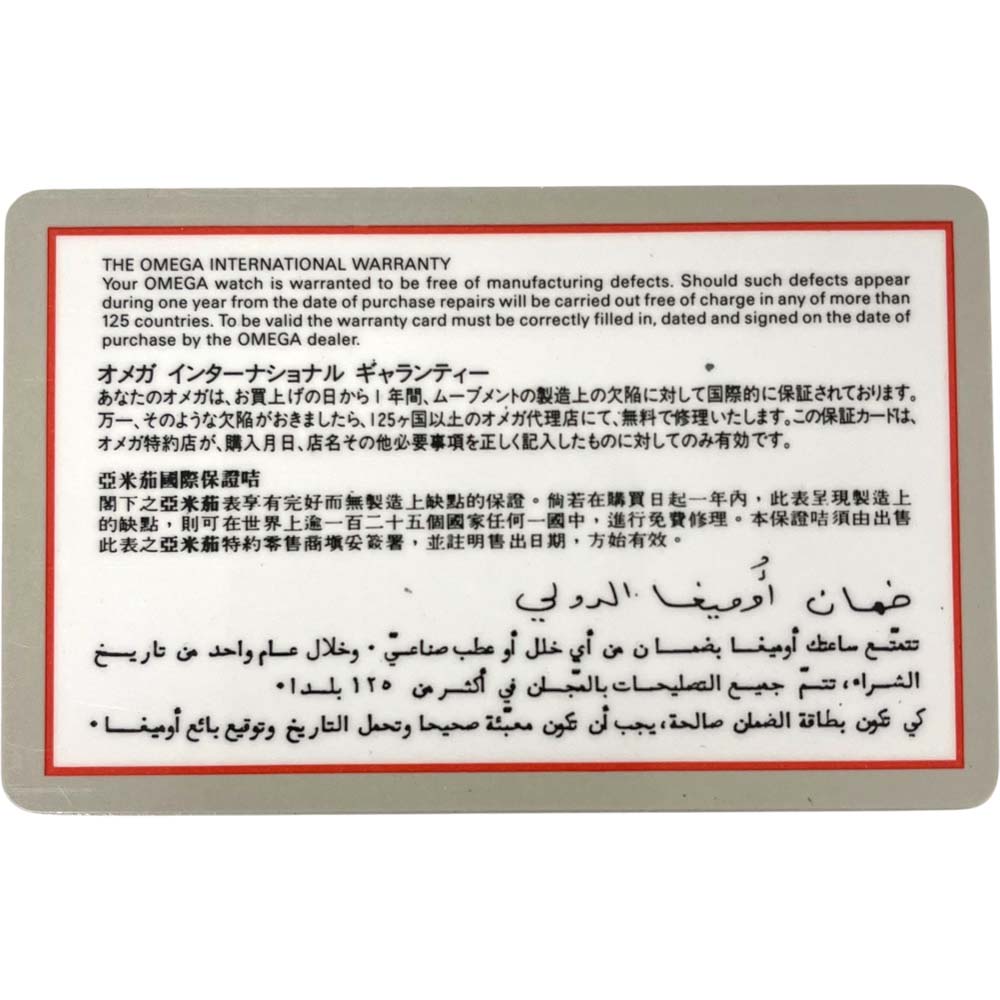 THE OMEGA INTERNATIONAL WARRANTY
Your OMEGA watch is warranted to be free of manufacturing defects. Should such defects appear
during one year from the date of purchase repairs will be carried out free of charge in any of more than
125 countries. To be valid the warranty card must be correctly filled in, dated and signed on the date of
purchase by the OMEGA dealer.
オメガ インターナショナル ギャランティー
あなたのオメガは、お買上げの日から1年間、ムーブメントの製造上の欠陥に対して国際的に保証されております。
万一、そのような欠陥がおきましたら、125ヶ国以上のオメガ代理店にて、無料で修理いたします。この保証カードは、
オメガ特約店が、購入月日、店名その他必要事項を正しく記入したものに対してのみ有効です。
亞米茄國際保證咭
閣下之亞米茄表享有完好而無製造上缺點的保證。倘若在購買日起一年內，此表呈現製造上
的缺點，則可在世界上逾一百二十五個國家任何一國中，進行免費修理。本保證咭須由出售
此表之亞米茄特約零售商塡妥簽署，並註明售出日期，方始有效。
ضمان أُوميغا الدولي
تتمتّع ساعتك أوميغا بضمان من أي خلل أو عطب صناعيّ · وخلال عام واحد من تاريخ
الشراء، تتمّ جميع التصليحات بالمجّان في أكثر من ١٢٥ بلدا ·
كي تكون بطاقة الضمان صالحة، يجب أن تكون معبّئة صحيحا وتحمل التاريخ وتوقيع بائع أوميغا ·